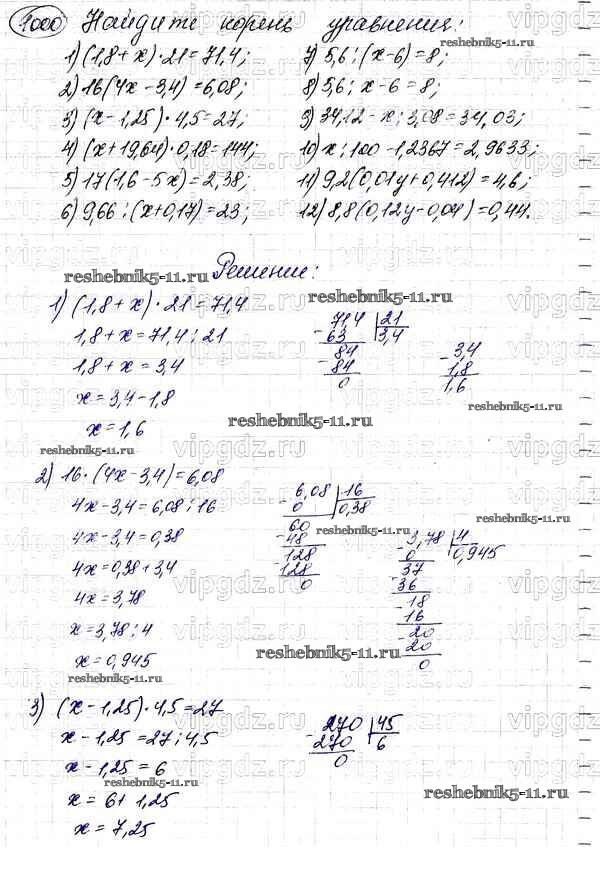 1000 Найдите корень уравнения:
reshebnik5-11.ru
1) (1,8+x)·21=71,4; 7) 5,6:(x-6)=8;
2) 16(4x-3,4)=6,08; 8) 5,6:x-6=8;
3) (x-1,25)·4,5=27; 9) 34,12-x:3,08=34,03;
4) (x+19,64)·0,18=144; 10) x:100-1,2367=2,9633;
5) 17(1,6-5x)=2,38; 11) 9,2(0,01y+0,412)=4,6;
6) 9,66:(x+0,17)=23; 12) 8,8(0,12y-0,04)=0,44.
reshebnik5-11.ru Решение:
1) (1,8+x)·21=71,4 reshebnik5-11.ru
1,8+x=71,4:21
1,8+x=3,4
x=3,4-1,8
x=1,6
71,4 21
-63 3,4
84
-84
0
-3,4
1,8
1,6
reshebnik5-11.ru
reshebnik5-11.ru
reshebnik5-11.ru
2) 16·(4x-3,4)=6,08
4x-3,4=6,08:16
4x-3,4=0,38
4x=0,38+3,4
4x=3,78
x=3,78:4
x=0,945
6,08 16
-0 0,38
60
-48
128
-128
0
reshebnik5-11.ru
reshebnik5-11.ru
3,78 4
-0 0,945
37
-36
18
-16
20
-20
0
reshebnik5-11.ru
3) (x-1,25)·4,5=27
x-1,25=27:4,5
x-1,25=6
x=6+1,25
x=7,25
270 45
-270 6
0
reshebnik5-11.ru
reshebnik5-11.ru
vipgdz.ru